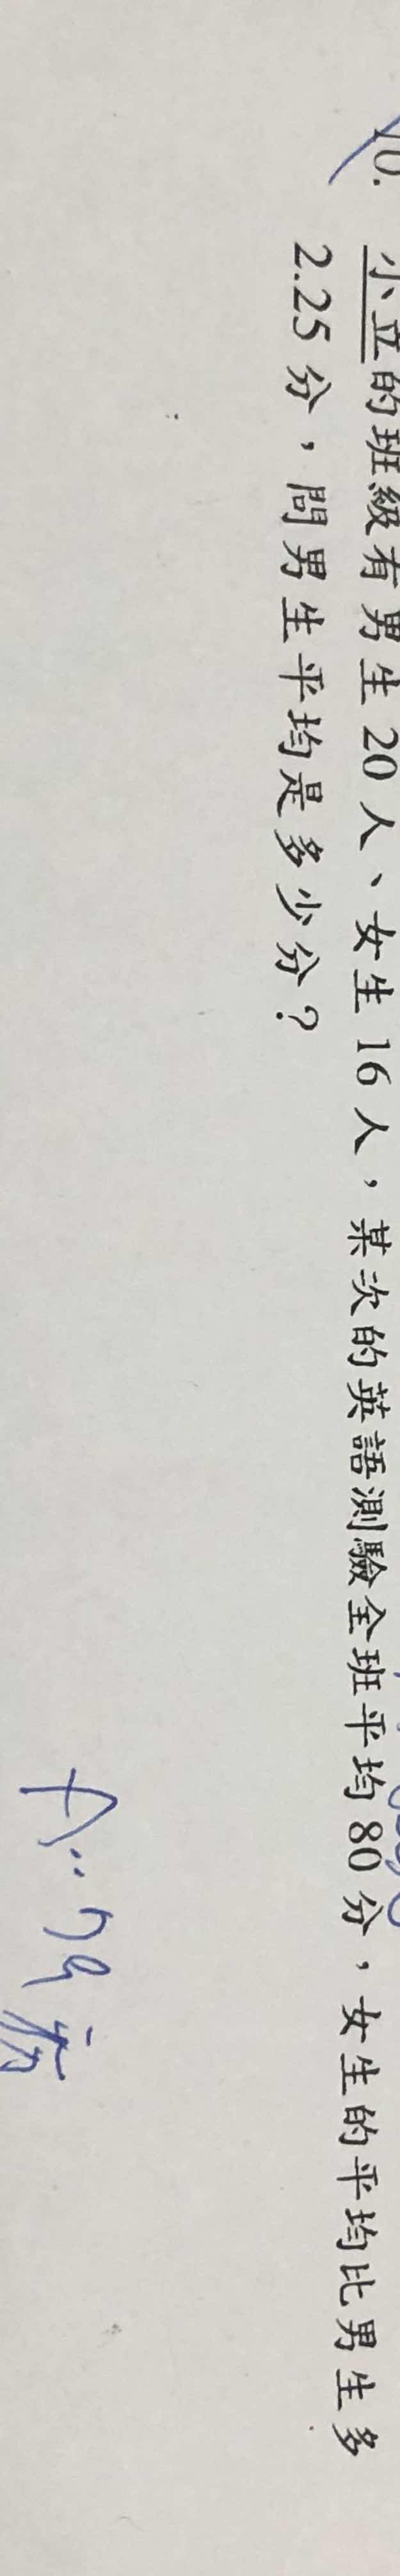 10. 小立的班級有男生20人、女生16人，某次的英語測驗全班平均80分，女生的平均比男生多
2.25分，問男生平均是多少分？
A:79分